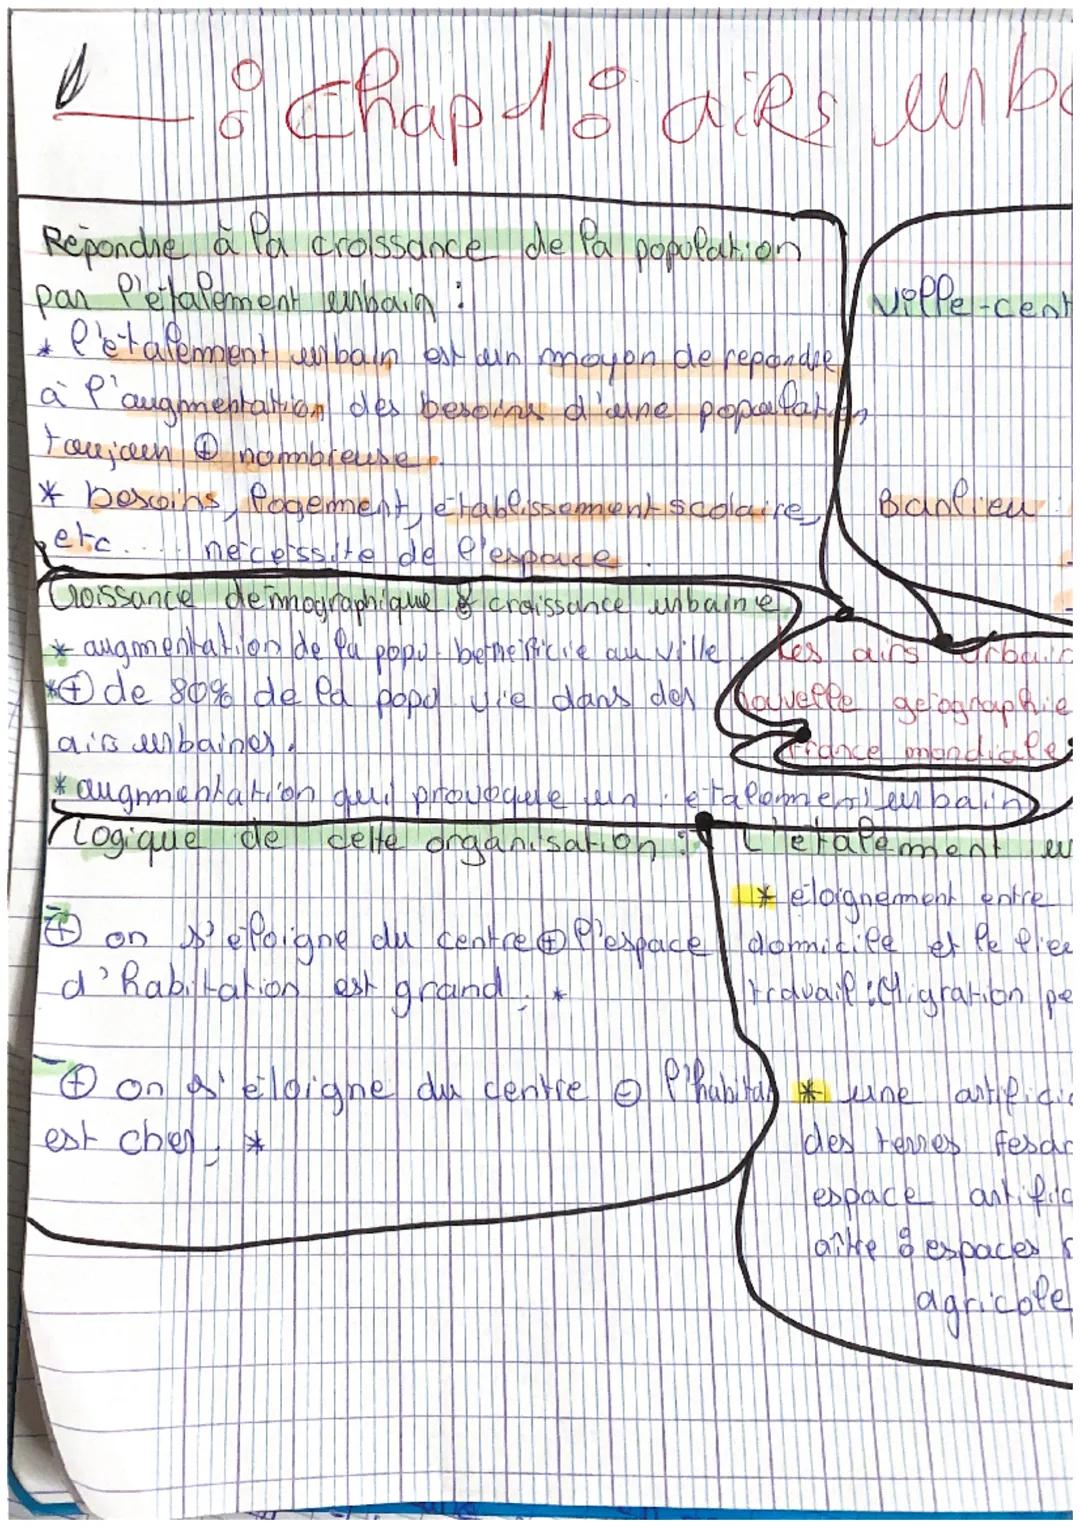 : Chap 1 : airs urba
Répondre à la croissance de la population
par l'étalement urbain :
* l'étalement urbain est un moyon de repondre
à l'augmentation des besoins d'une population
toujour ⊕ nombreuse.
* besoins, logement, établissement scolaire,
etc.... nécessite de l'espace.
Ville-cent
Banlieu
Croissance démographique & croissance urbaine
* augmentation de la popu. bénéficie au ville.
*⊕ de 80% de la popu vie dans des
airs urbaines.
* augmentation qui provoque un étalement urbain
Les airs urbain
nouvelle géographie
France mondiale
Logique de cette organisation :
⊕ on s'éloigne du centre ⊕ l'espace
d'habitation est grand. *
⊕ on s'éloigne du centre ⊖ l'habitat
est cher. *
L'étalement ur
* éloignement entre
domicile et le lieu
travail : Migration pe
* une artificia
des terres fesan
espace artific
aître : espaces
agricole